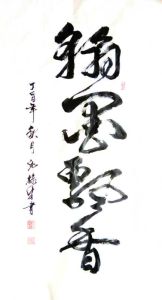 翰墨飘香
丁酉年秋月